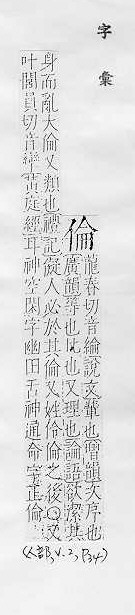 字彙
倫
龍春切音綸說文輩也增韻次序也
廣韻等也比也又理也論語欲潔其
身而亂大倫又類也禮記儗人必於其倫又姓伶倫之後○又
叶閭員切音攣黃庭經耳神空閑字幽田舌神通命字正倫
(人部, V.2, P34)